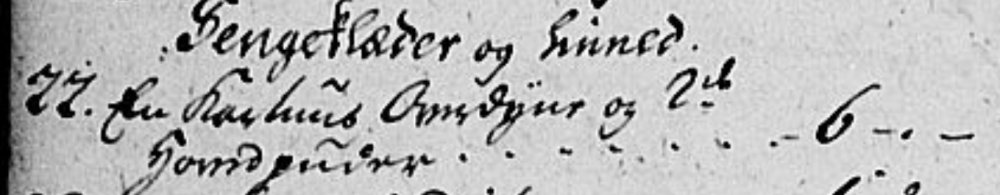 Sengeklæder og Linned.
22. En Kartuns Overdyne og 2de
Hovedpuder . . . . . . . 6 - . -